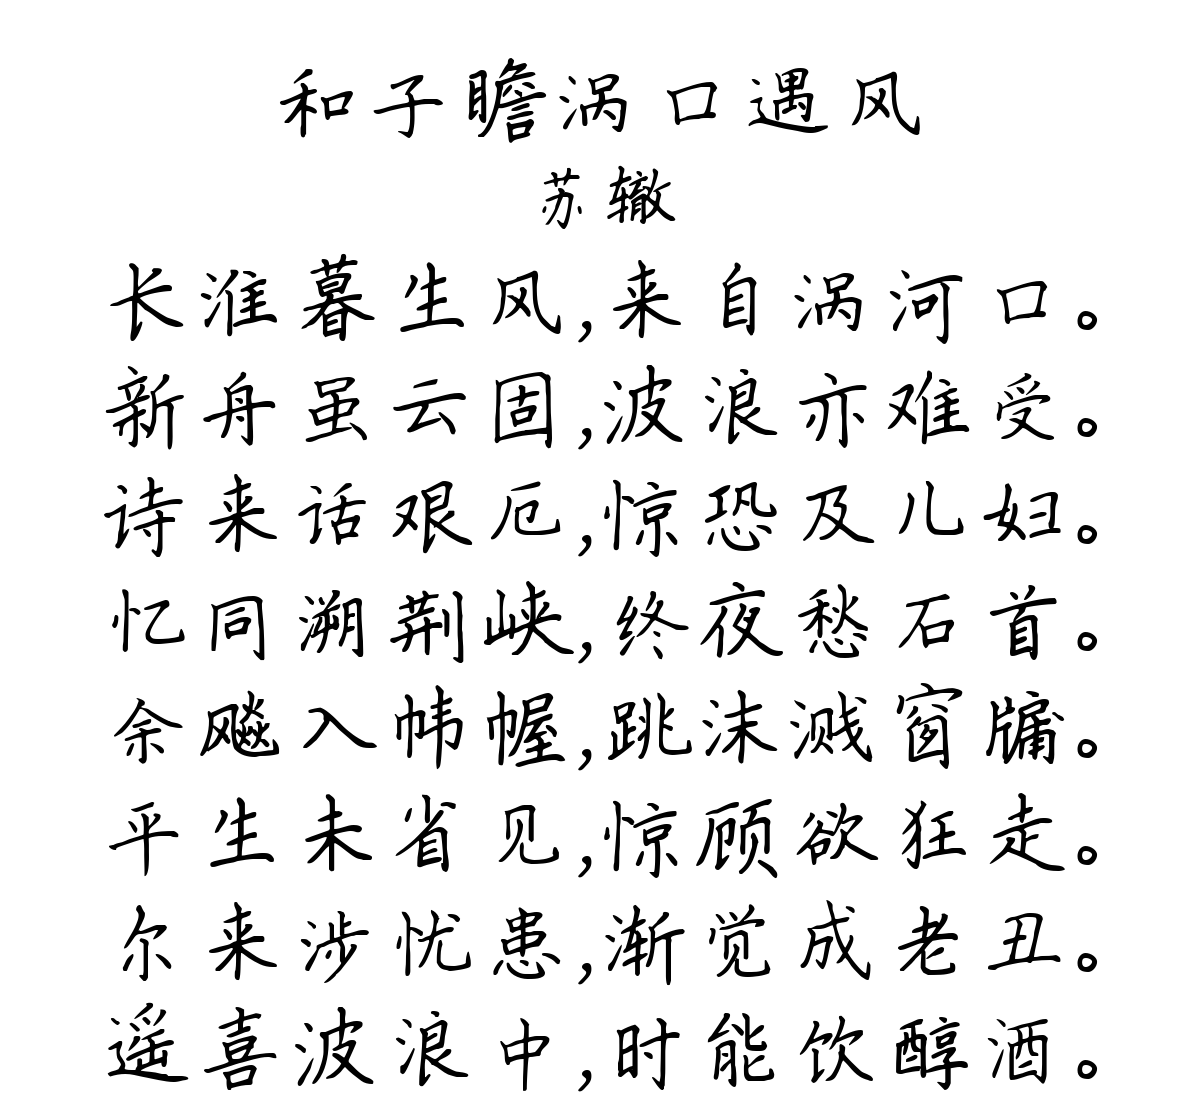 和子瞻涡口遇风
苏辙
长淮暮生风,来自涡河口。
新舟虽云固,波浪亦难受。
诗来话艰厄,惊恐及儿妇。
忆同溯荆峡,终夜愁石首。
余飚入帏幄,跳沫溅窗牖。
平生未省见,惊顾欲狂走。
尔来涉忧患,渐觉成老丑。
遥喜波浪中,时能饮醇酒。